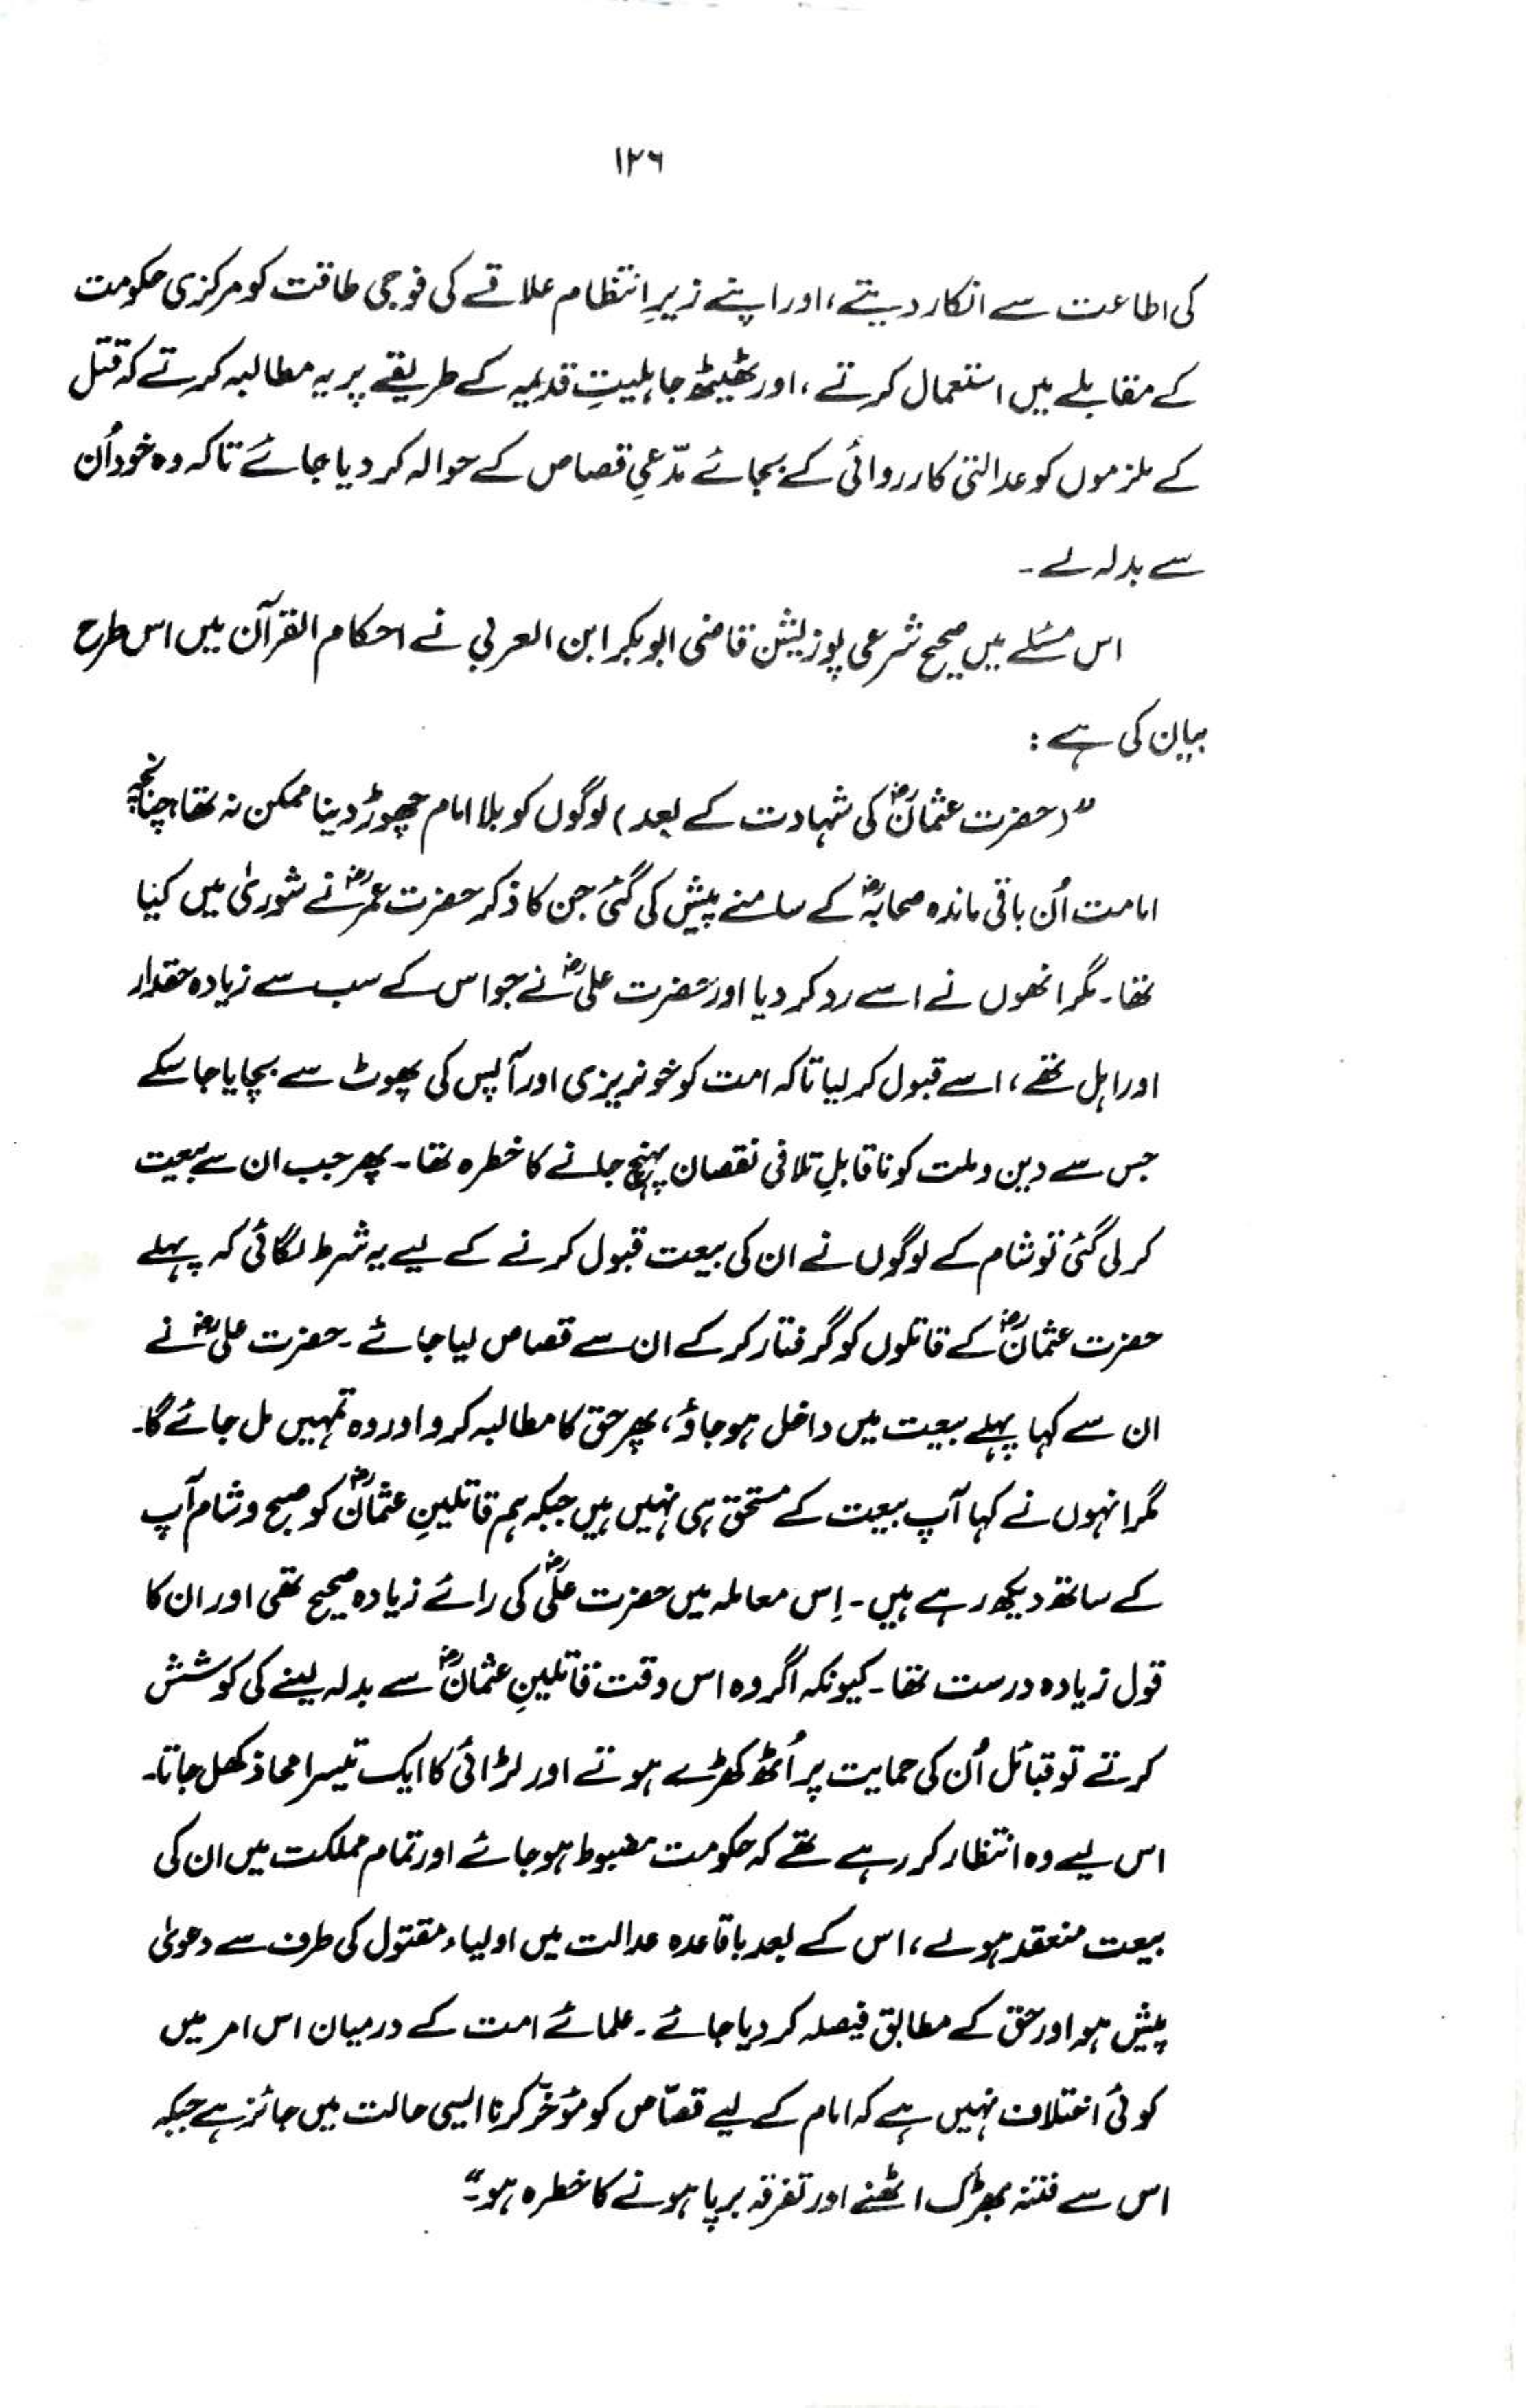 ۱۲۶
کی اطاعت سے انکار دیتے، اور اپنے زیرِ انتظام علاقے کی فوجی طاقت کو مرکزی حکومت
کے مقابلے میں استعمال کرتے، اور ٹھیٹھ جاہلیتِ قدیمہ کے طریقے پر یہ مطالبہ کرتے کہ قتل
کے ملزموں کو عدالتی کارروائی کے بجائے مدّعیِ قصاص کے حوالہ کر دیا جائے تاکہ وہ خود اُن
سے بدلہ لے۔
اس مسئلے میں صحیح شرعی پوزیشن قاضی ابوبکر ابن العربی نے احکام القرآن میں اس طرح
بیان کی ہے:
”(حضرت عثمانؓ کی شہادت کے بعد) لوگوں کو بلا امام چھوڑ دینا ممکن نہ تھا، چنانچہ
امامت اُن باقی ماندہ صحابہؓ کے سامنے پیش کی گئی جن کا ذکر حضرت عمرؓ نے شوریٰ میں کیا
تھا۔ مگر انھوں نے اسے رد کر دیا اور حضرت علیؓ نے جو اس کے سب سے زیادہ حقدار
اور اہل تھے، اسے قبول کر لیا تاکہ امت کو خونریزی اور آپس کی پھوٹ سے بچایا جا سکے
جس سے دین و ملت کو ناقابلِ تلافی نقصان پہنچ جانے کا خطرہ تھا۔ پھر جب ان سے بیعت
کر لی گئی تو شام کے لوگوں نے ان کی بیعت قبول کرنے کے لیے یہ شرط لگائی کہ پہلے
حضرت عثمانؓ کے قاتلوں کو گرفتار کر کے ان سے قصاص لیا جائے۔ حضرت علیؓ نے
ان سے کہا پہلے بیعت میں داخل ہو جاؤ، پھر حق کا مطالبہ کرو اور وہ تمہیں مل جائے گا۔
مگر انہوں نے کہا آپ بیعت کے مستحق ہی نہیں ہیں جبکہ ہم قاتلینِ عثمانؓ کو صبح و شام آپ
کے ساتھ دیکھ رہے ہیں۔ اِس معاملہ میں حضرت علیؓ کی رائے زیادہ صحیح تھی اور ان کا
قول زیادہ درست تھا۔ کیونکہ اگر وہ اس وقت قاتلینِ عثمانؓ سے بدلہ لینے کی کوشش
کرتے تو قبائل اُن کی حمایت پر اُٹھ کھڑے ہوتے اور لڑائی کا ایک تیسرا محاذ کھل جاتا۔
اس لیے وہ انتظار کر رہے تھے کہ حکومت مضبوط ہو جائے اور تمام مملکت میں ان کی
بیعت منعقد ہو لے، اس کے بعد باقاعدہ عدالت میں اولیاء مقتول کی طرف سے دعویٰ
پیش ہو اور حق کے مطابق فیصلہ کر دیا جائے۔ علمائے امت کے درمیان اس امر میں
کوئی اختلاف نہیں ہے کہ امام کے لیے قصّاص کو مؤخّر کرنا ایسی حالت میں جائز ہے جبکہ
اس سے فتنہ بھڑک اٹھنے اور تفرقہ برپا ہونے کا خطرہ ہو۔“